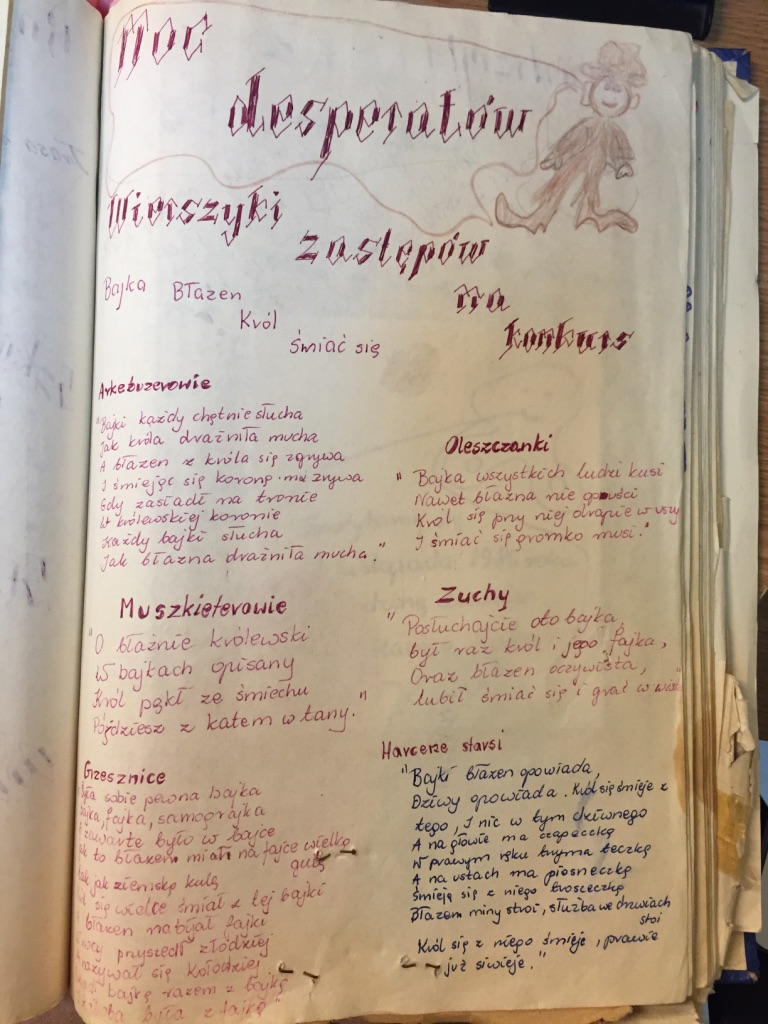 Noc
desperatów
Wierszyki
zastępów
na
konkurs
Bajka Błazen
Król
Śmiać się
Arkebuzerowie
"Bajki każdy chętnie słucha
Jak króla drażniła mucha
A błazen z króla się zgrywa
I śmiejąc się koronę mu zrywa
Gdy zasiadł na tronie
W królewskiej koronie
Każdy bajki słucha
Jak błazna drażniła mucha."
Muszkieterowie
"O błaźnie królewski
W bajkach opisany
Król pękł ze śmiechu
Pójdziesz z katem w tany."
Grzesznice
Była sobie pewna bajka
Bajka, fajka, samograjka
A zawarte było w bajce
Jak to błazen miał na fajce wielką
gulę
Taką jak ziemską kulę
się wielce śmiał z tej bajki
błazen nabijał fajki
nocy przyszedł złodziej
nazywał się Kołodziej
bajkę razem z fajką
była z fajką"
Oleszczanki
"Bajka wszystkich ludzi kusi
Nawet błazna nie opuści
Król się przy niej drapie w uszy
I śmiać się gromko musi."
Zuchy
"Posłuchajcie oto bajka,
był raz król i jego fajka,
Oraz błazen oczywista,
lubił śmiać się i grać w
Harcerze starsi
"Bajki błazen opowiada,
Dziwy opowiada. Król się śmieje z
tego, I nic w tym dziwnego
A na głowie ma czapeczkę
W prawym ręku trzyma teczkę
A na ustach ma piosneczkę
Śmieją się z niego troszeczkę
Błazen miny stroi, służba we drzwiach
stoi
Król się z niego śmieje, prawie
już siwieje."